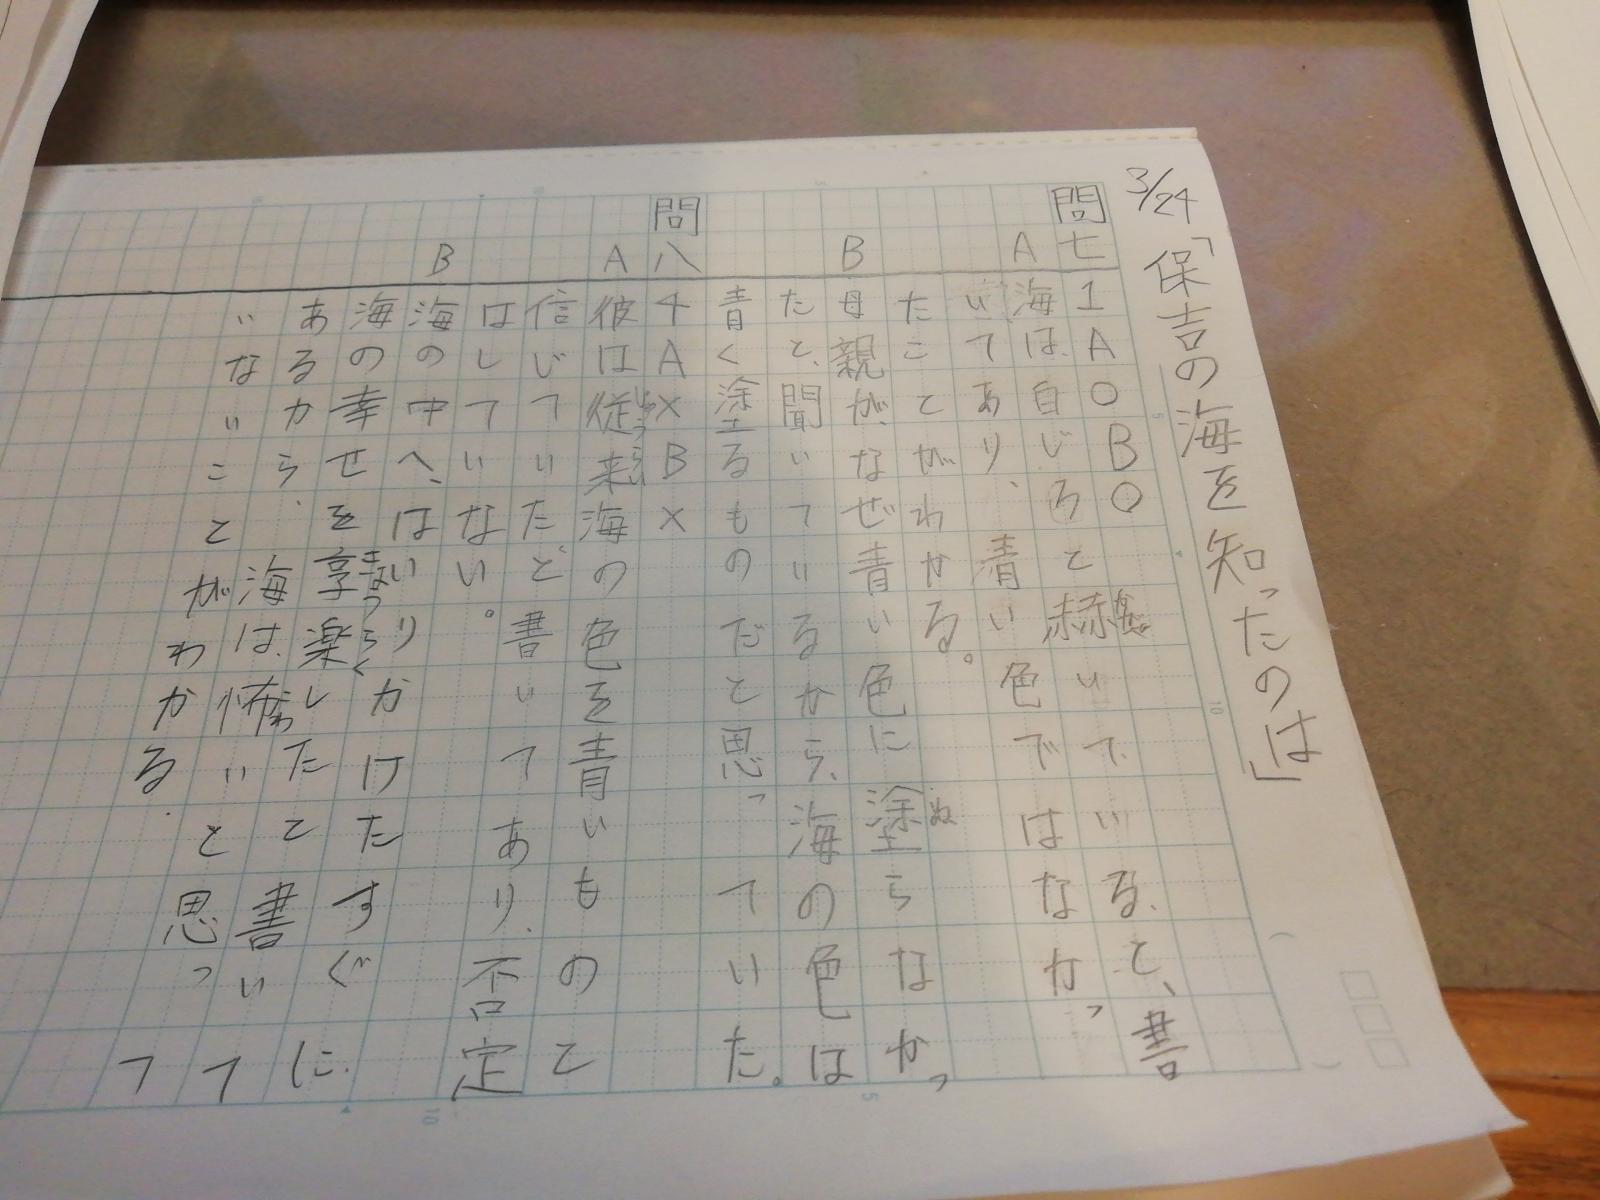 3/24「保吉の海を知ったのは」
問七 1A○B○
A 海は、自じろと赫いている、と、書
いてあり、青い色ではなかっ
たことがわかる。
B 母親が、なぜ青い色に塗らなかっ
たと、聞いているから、海の色は
青く塗るものだと思っていた。
問八 4A×B×
A 彼は従来海の色を青いものと
信じていたと、書いてあり、否定
はしていない。
B 海の中へ、はいりかけたすぐに
海の幸せを享楽したと書いて
あるから、海は、怖いと思って
いないことがわかる.